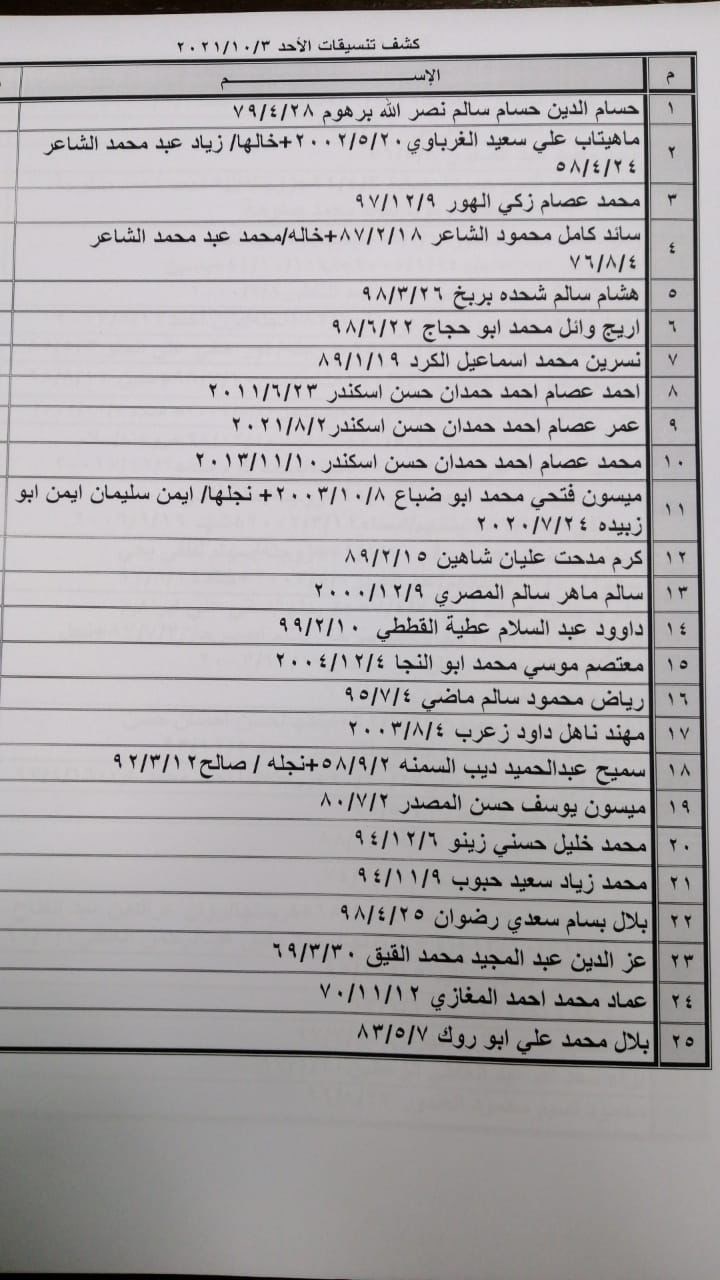 كشف تنسيقات الأحد ٢٠٢١/١٠/٣
م الإســـــــــم
١ حسام الدين حسام سالم نصر الله برهوم ٧٩/٤/٢٨
٢ ماهيتاب علي سعيد الغرباوي٢٠٠٢/٥/٢٠+خالها/ زياد عبد محمد الشاعر
٥٨/٤/٢٤
٣ محمد عصام زكي الهور ٩٧/١٢/٩
٤ سائد كامل محمود الشاعر ٨٧/٢/١٨+خاله/محمد عبد محمد الشاعر
٧٦/٨/٤
٥ هشام سالم شحده بربخ ٩٨/٣/٢٦
٦ اريج وائل محمد ابو حجاج ٩٨/٦/٢٢
٧ نسرين محمد اسماعيل الكرد ٨٩/١/١٩
٨ احمد عصام احمد حمدان حسن اسكندر ٢٠١١/٦/٢٣
٩ عمر عصام احمد حمدان حسن اسكندر٢٠٢١/٨/٢
١٠ محمد عصام احمد حمدان حسن اسكندر٢٠١٣/١١/١٠
١١ ميسون فتحي محمد ابو ضباع ٢٠٠٣/١٠/٨+ نجلها/ ايمن سليمان ايمن ابو
زبيده ٢٠٢٠/٧/٢٤
١٢ كرم مدحت عليان شاهين ٨٩/٢/١٥
١٣ سالم ماهر سالم المصري ٢٠٠٠/١٢/٩
١٤ داوود عبد السلام عطية القططي ٩٩/٢/١٠
١٥ معتصم موسي محمد ابو النجا ٢٠٠٤/١٢/٤
١٦ رياض محمود سالم ماضي ٩٥/٧/٤
١٧ مهند ناهل داود زعرب ٢٠٠٣/٨/٤
١٨ سميح عبدالحميد ديب السمنه ٥٨/٩/٢+نجله / صالح٩٢/٣/١٢
١٩ ميسون يوسف حسن المصدر ٨٠/٧/٢
٢٠ محمد خليل حسني زينو ٩٤/١٢/٦
٢١ محمد زياد سعيد حبوب ٩٤/١١/٩
٢٢ بلال بسام سعدي رضوان ٩٨/٤/٢٥
٢٣ عز الدين عبد المجيد محمد القيق ٦٩/٣/٣٠
٢٤ عماد محمد احمد المغازي ٧٠/١١/١٢
٢٥ بلال محمد علي ابو روك ٨٣/٥/٧